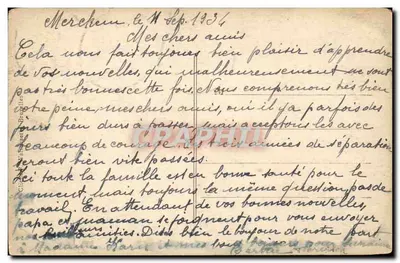 Merckem, le 11 Sep. 1934
Mes chers amis
Cela nous fait toujours bien plaisir d'apprendre
de vos nouvelles, qui malheureusement ne sont
pas très bonnes cette fois. Nous comprenons très bien
votre peine, mes chers amis, oui il y a parfois des
jours bien durs à passer, mais acceptons les avec
beaucoup de courage, trois années de séparation
seront bien vite passées.
Ici toute la famille est en bonne santé pour le
moment, mais toujours la même question pas de
travail. En attendant de vos bonnes nouvelles,
papa et maman se joignent pour vous envoyer
nos amitiés. Dites bien le bonjour de notre part
à Madame et mes